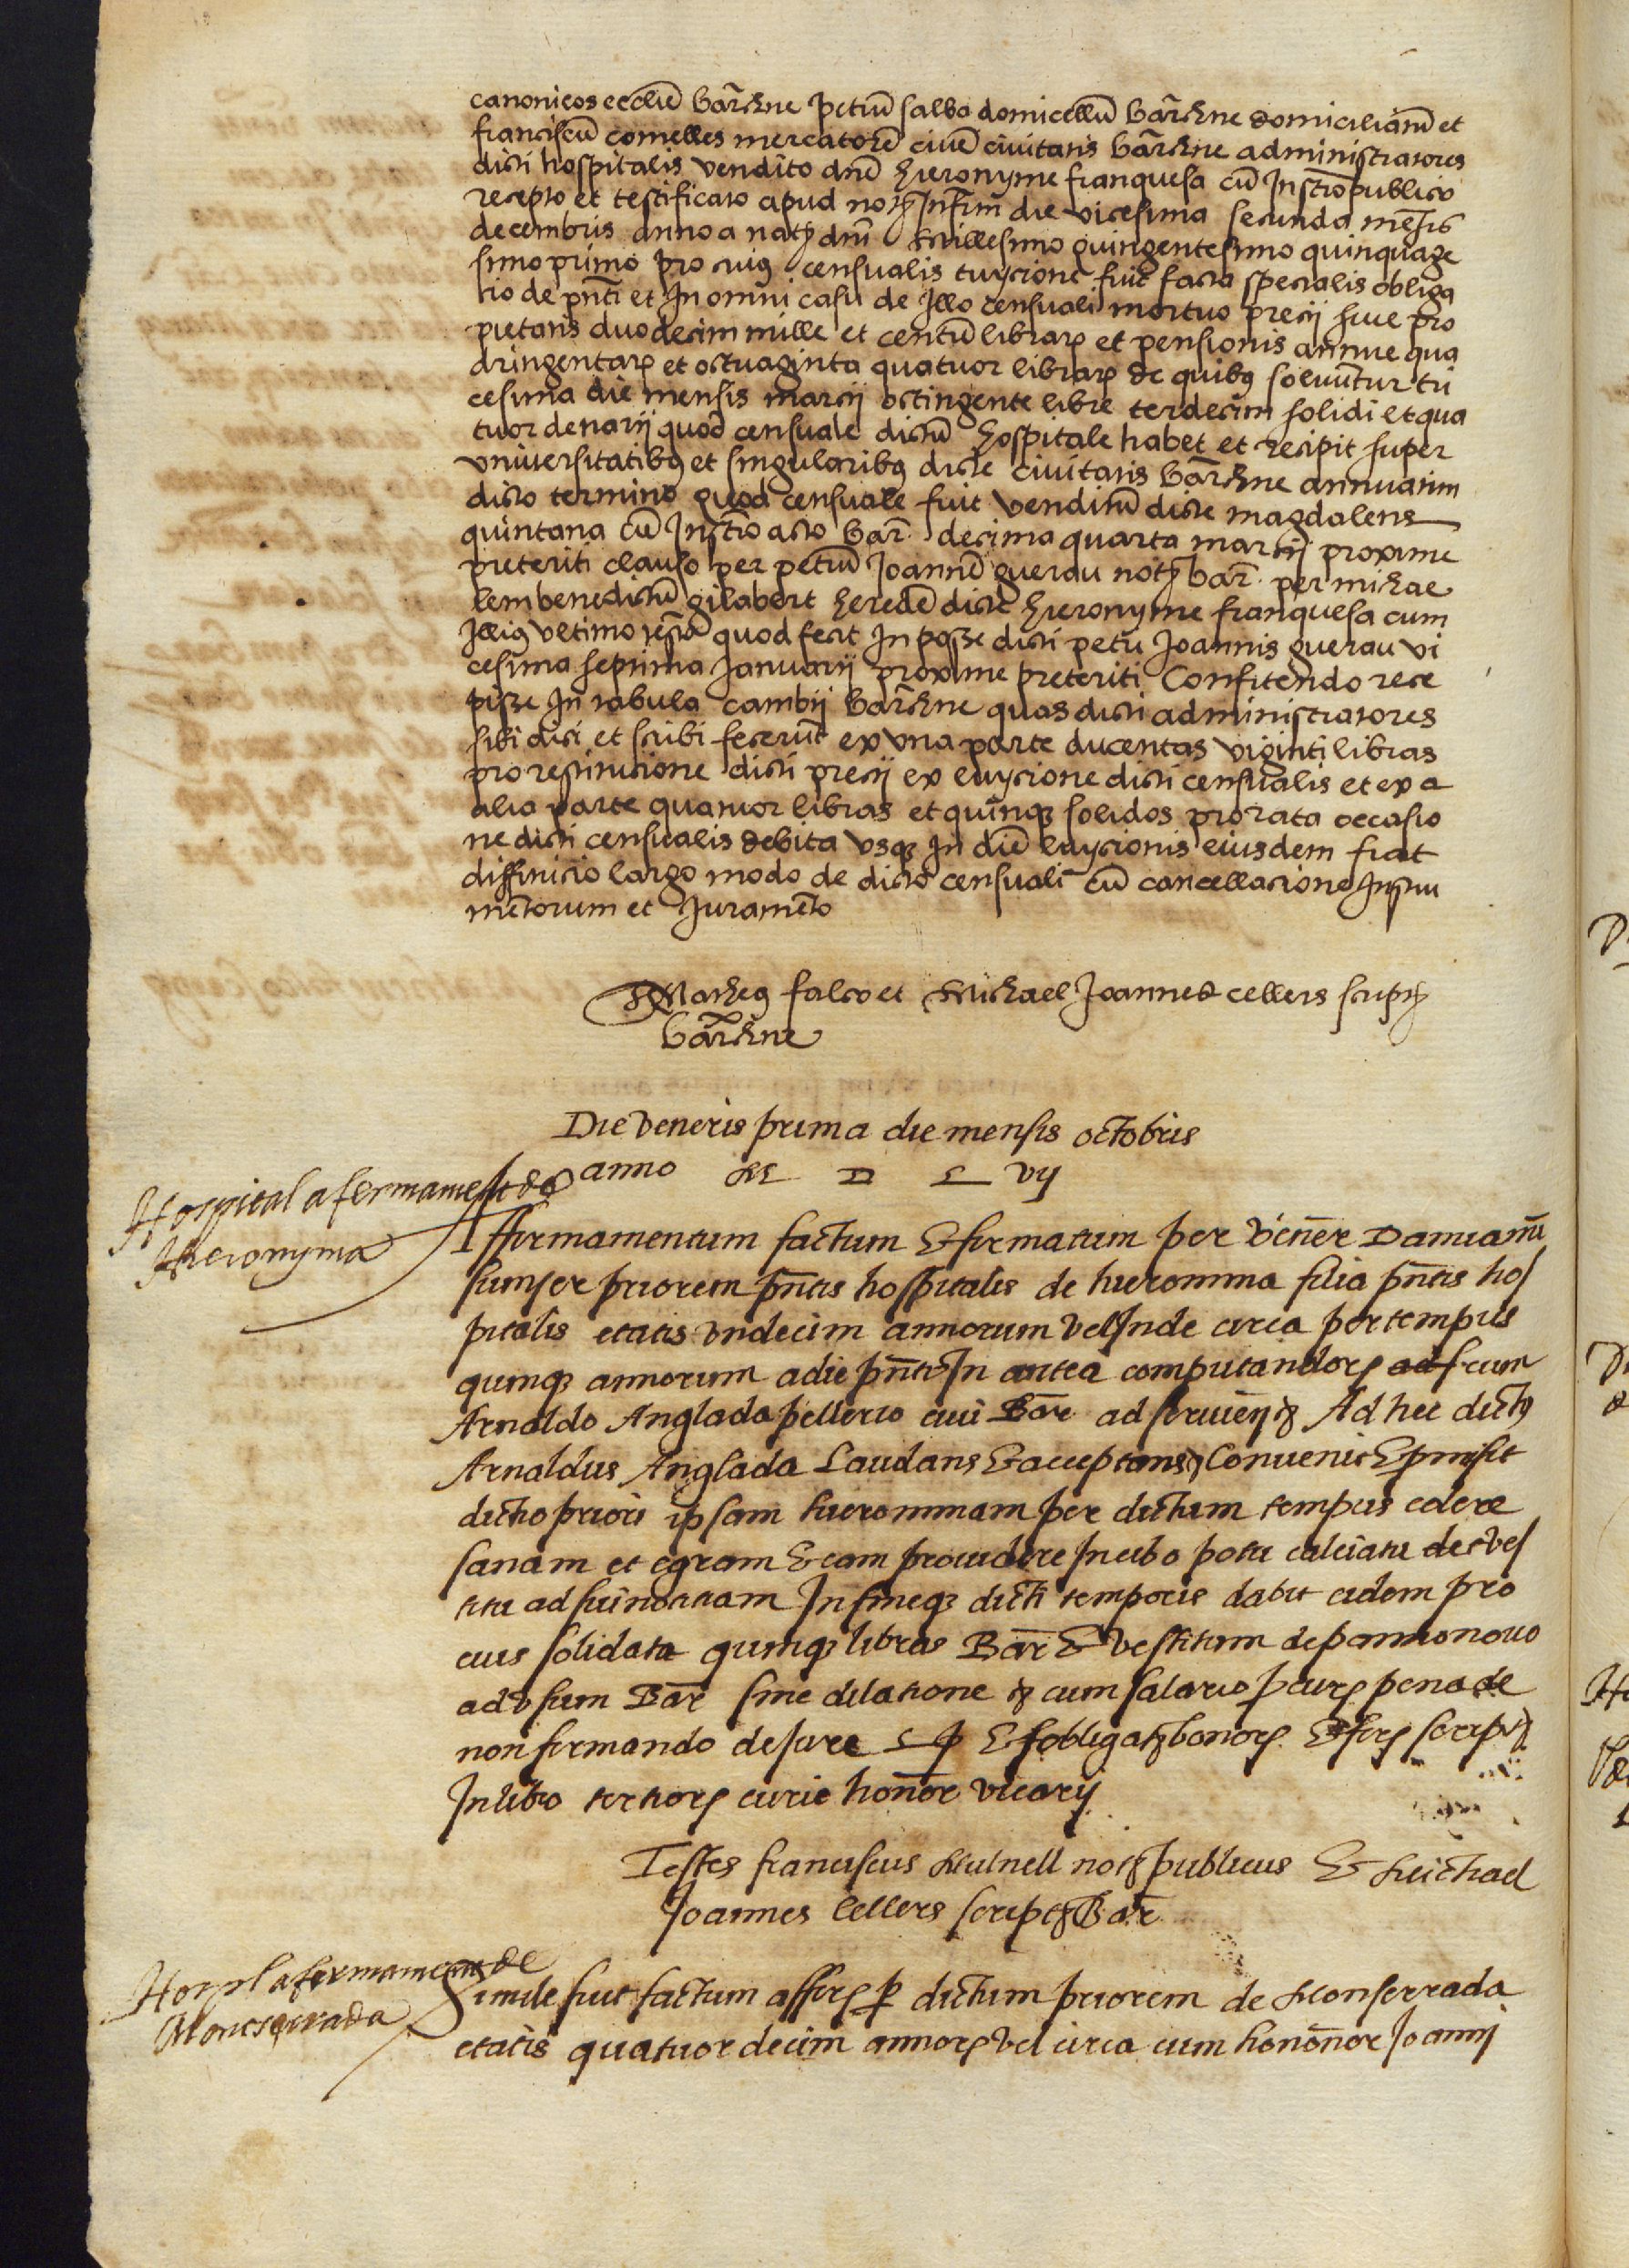 canonicos ecclie barchne petru salba domicellu barchne domiciliatu et
franciscu comelles mercatore cive civitatis barchne administratores
dicti hospitalis vendito dne hieronyme franquesa cu Instro publico
recepto et testificato apud not Infrm die vicesima secunda mesis
decembris anno a nat dni Millesimo quingentesimo quinquage
simo primo pro cuius censualis luycione fuit facta specialis obliga
tio de pnti et In omni casu de Illo censuali mortuo precij sive pro
pietatis duodecim mille et centu librar et pensionis annue qua
dringentar et octuaginta quatuor librar de quibus solvuntur tri
cesima die mensis marcij octingente libre terdecim solidi et qua
tuor denarij quod censuale dictu hospitale habet et recipit super
universitatibus et singularibus dicte civitatis barchne annuatim
dicto termino quod censuale fuit venditu dicte magdalene
quintana cu Instro acto bar decima quarta marcij proxime
preteriti clauso per petru Joanne guerau not bar per michae
lem benedictu gilabert herede dicte hieronyme franquesa cum
Illius ultimo testo quod fecit In posse dicti petri Joannis guerau vi
cesima septima Januarij proxime preteriti Confitendo rece
pisse In tabula cambij barchne quas dicti administratores
sibi dici et scribi fecerut ex una parte ducentas viginti libras
pro restitucione dicti precij ex luycione dicti censualis et ex a
alia parte quatuor libras et quinq solidos pro rata occasio
ne dicti censualis debita usq In die luycionis eiusdem fiat
diffinicio largo modo de dicto censuali cu cancellacione Instru
mentorum et Juramento
Matheus falco et Michael Joannes cellers script
barchne
Die veneris prima die mensis octobris
anno M D L vij
Hospital afermament de
Hieronyma
Affirmamentum factum & firmatum per vener Damianu
sunyer priorem pntis hospitalis de hieronima filia pntis hos
pitalis etatis undecim annorum vel Inde circa per tempus
quinq annorum a die pnti In antea computandor ad cum
Arnaldo Anglada pellerio civi Bar ad serviend Ad hec dictus
Arnaldus Anglada Laudans & acceptans Convenit & pmisit
dicto priori ipsam hieronimam per dictum tempus tenere
sanam et egram & eam providere In cibo potu calciatu et ves
titu ad sui notitiam In fineq dicti temporis dabit eidem pro
eius solidata quinq libras Bar & vestitum de panno novo
ad usum Bar sine dilatione & cum salario pcur pena de
non firmando de Jure & obligat bonor & fer script
In libro tertior curie honor vicarij
Testes franciscus Mulnell not publicus & Michael
Joannes Cellers script Bar
Hospl afermament de
Montserrada
Simile fuit factum affir p dictum priorem de Monserrada
etatis quatuordecim annor vel circa cum hononor Joanni